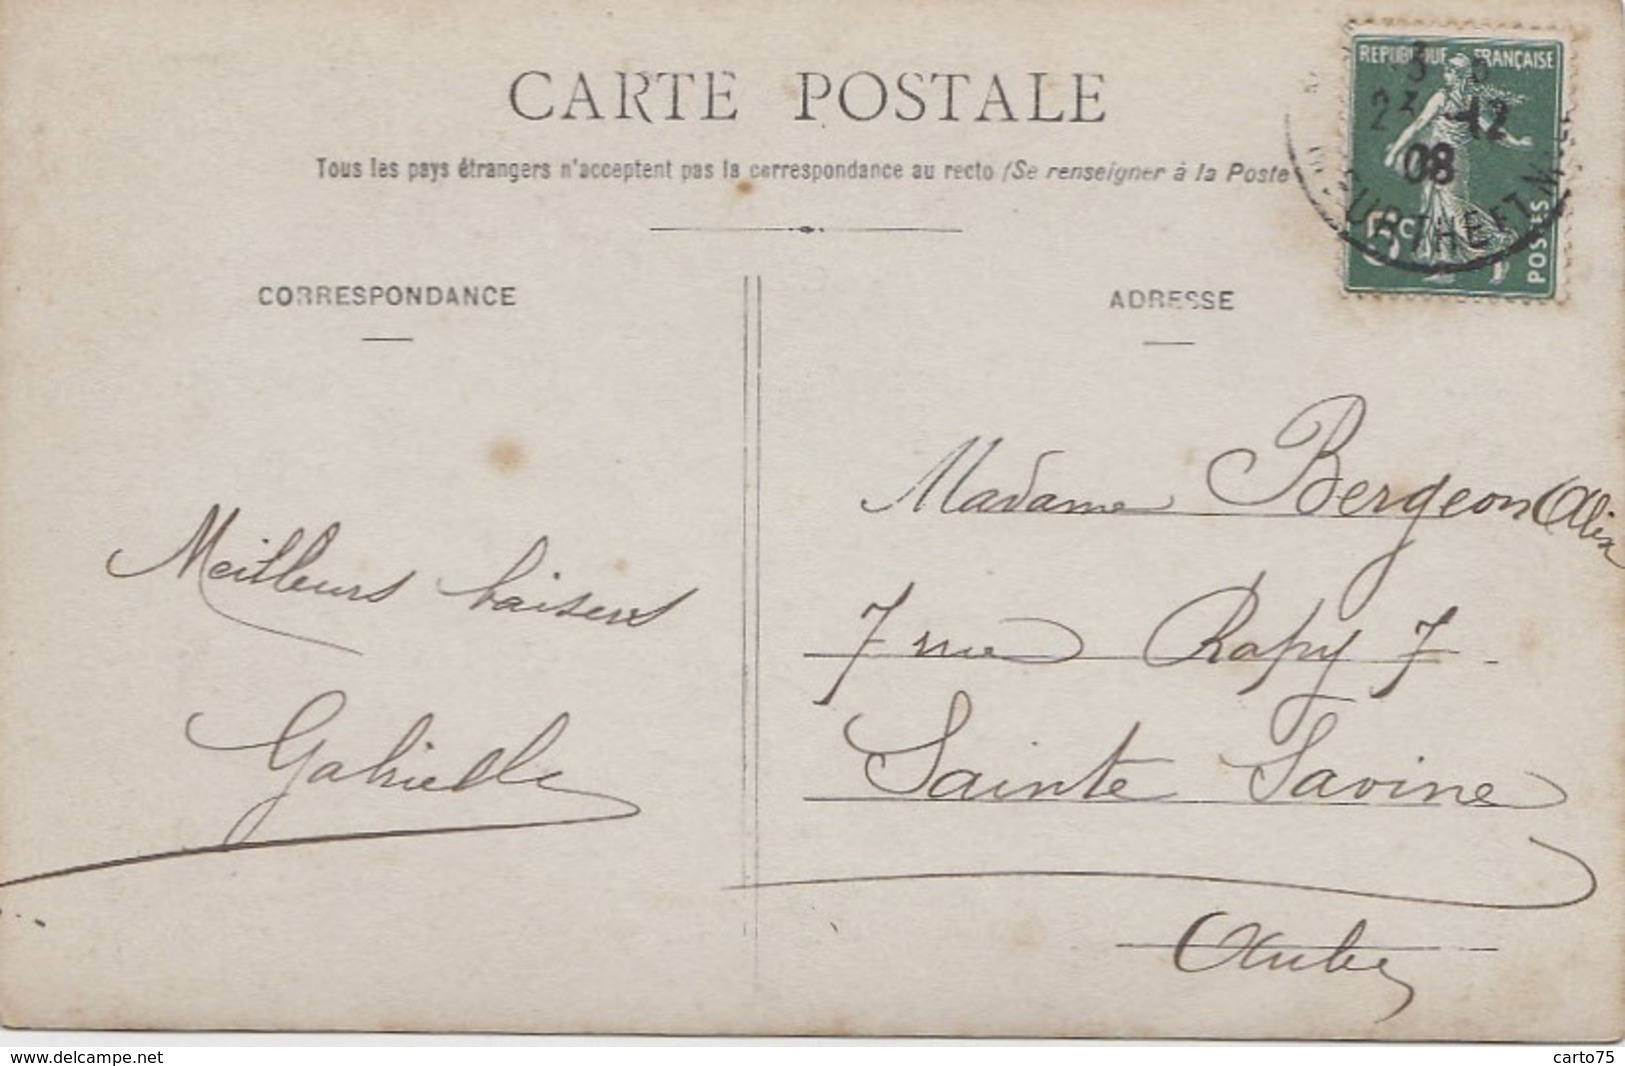 CARTE POSTALE
Tous les pays étrangers n'acceptent pas la correspondance au recto (Se renseigner à la Poste
REPUBLIQUE FRANÇAISE
12
08
URTHE ET M
5c
POSTES
CORRESPONDANCE
ADRESSE
Meilleurs baisers
Gabrielle
Madame Bergeon Alix
7 rue Rapy 7
Sainte Savine
Aube
www.delcampe.net
carto75